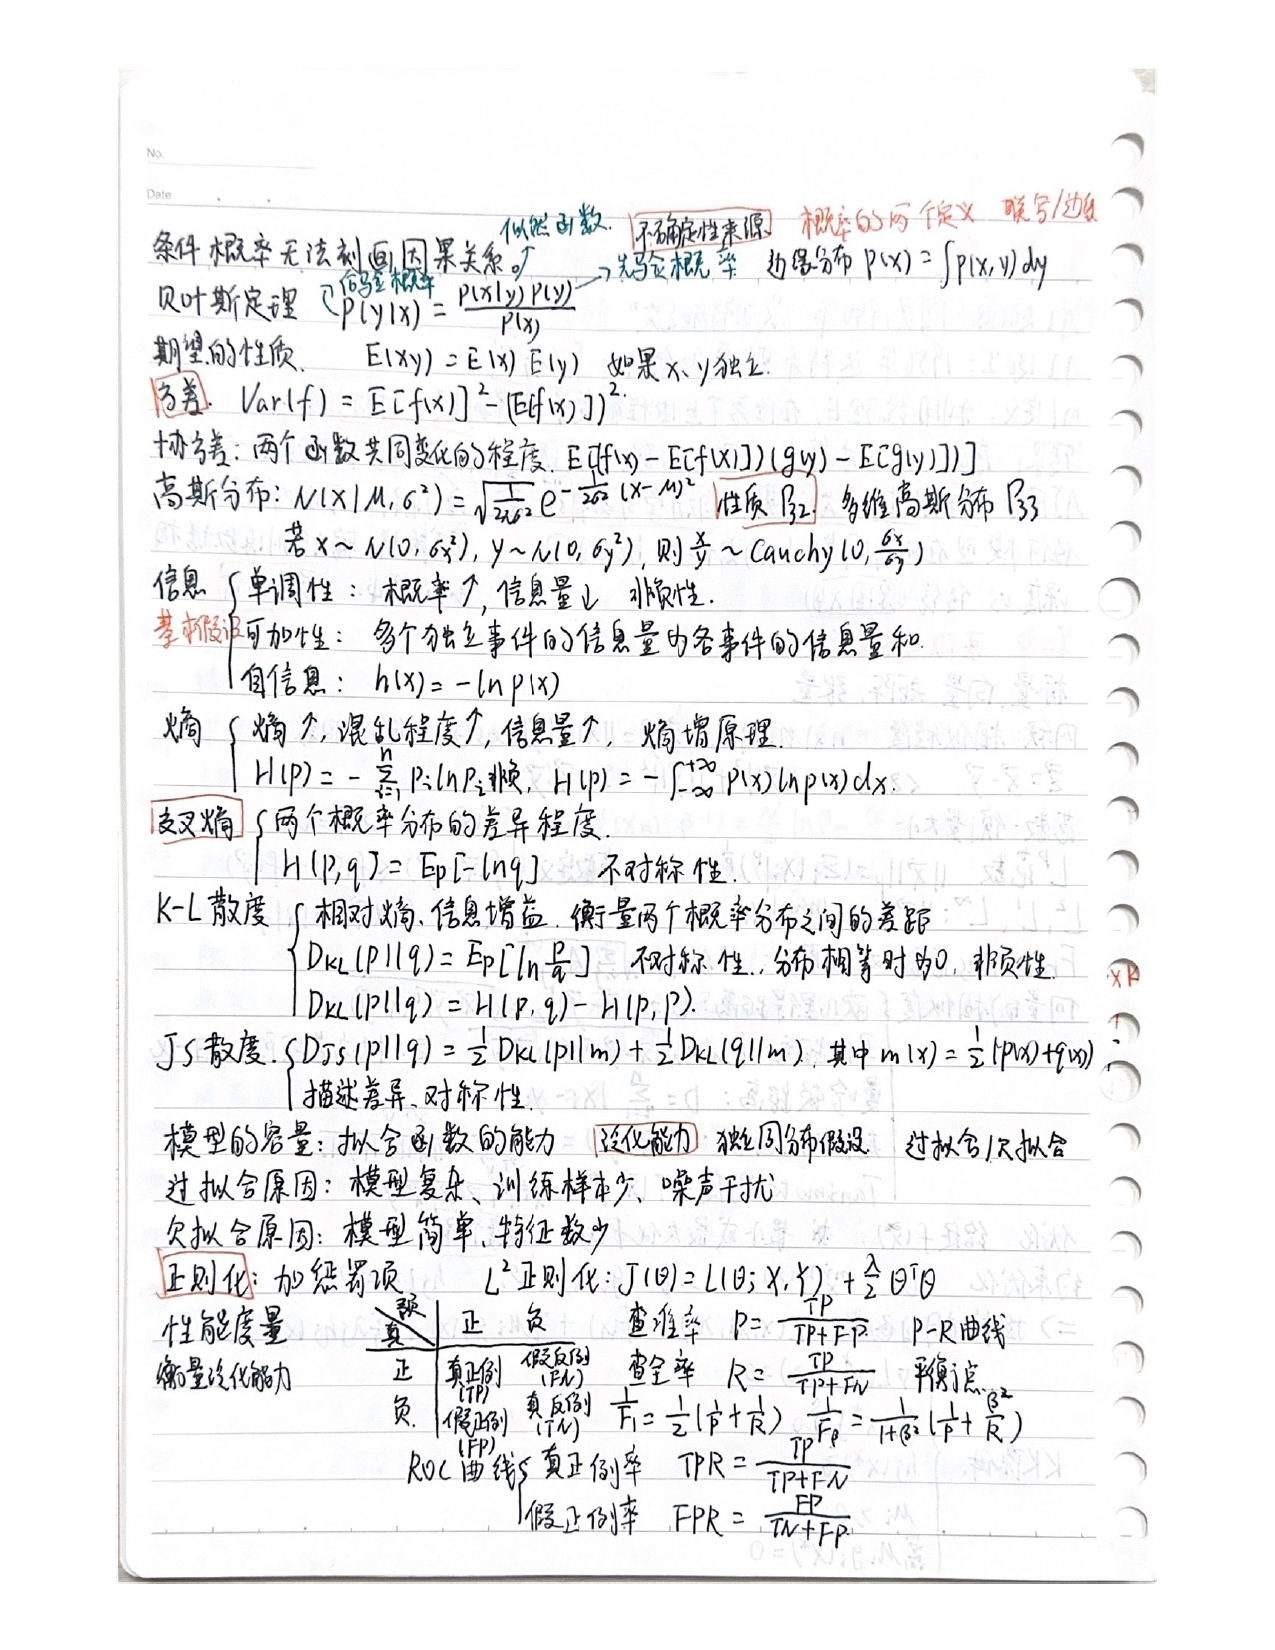 No.
Date
似然函数. 不确定性来源 概率的两个定义 联合/边缘
条件概率无法刻画因果关系。 →先验概率 边缘分布 p(x) = ∫p(x,y)dy
后验概率
贝叶斯定理 p(y|x) = p(x|y)p(y) / p(x)
期望的性质. E(xy) = E(x) E(y) 如果x、y独立.
方差. Var(f) = E[f(x)]² - (E[f(x)])².
协方差: 两个函数共同变化的程度. E[(f(x) - E[f(x)])(g(y) - E[g(y)])]
高斯分布: N(x|μ,σ²) = √(1/2πσ²) e^(-1/2σ² (x-μ)²) 性质 P32. 多维高斯分布 P33
若 x~N(0,σx²), y~N(0,σy²), 则 x/y ~ Cauchy(0, σx/σy)
信息 单调性: 概率↑, 信息量↓ 非负性.
基本假设 可加性: 多个独立事件的信息量为各事件的信息量和.
自信息: h(x) = -ln p(x)
熵 熵↑, 混乱程度↑, 信息量↑, 熵增原理.
H(p) = - Σ(i=1..n) pi ln pi 非负, H(p) = -∫(-∞..+∞) p(x) ln p(x) dx.
交叉熵 两个概率分布的差异程度.
H(p,q) = Ep[-lnq] 不对称性.
K-L散度 相对熵、信息增益. 衡量两个概率分布之间的差距
DKL(p||q) = Ep[ln p/q] 不对称性, 分布相等时为0, 非负性.
DKL(p||q) = H(p,q) - H(p,p).
JS散度. DJS(p||q) = 1/2 DKL(p||m) + 1/2 DKL(q||m), 其中 m(x) = 1/2 (p(x)+q(x))
描述差异、对称性.
模型的容量: 拟合函数的能力 泛化能力 独立同分布假设 过拟合/欠拟合
过拟合原因: 模型复杂、训练样本少、噪声干扰
欠拟合原因: 模型简单、特征数少
正则化: 加惩罚项 L²正则化: J(θ) = L(θ; X,Y) + λ/2 θᵀθ
性能度量 预 真 正 负 查准率 P = TP / TP+FP P-R曲线
衡量泛化能力 正 真正例(TP) 假反例(FN) 查全率 R = TP / TP+FN 平衡点.
负. 假正例(FP) 真反例(TN) 1/F1 = 1/2 (1/P + 1/R) 1/Fβ = 1/1+β² (1/P + β²/R)
ROC曲线 真正例率 TPR = TP / TP+FN
假正例率 FPR = FP / TN+FP